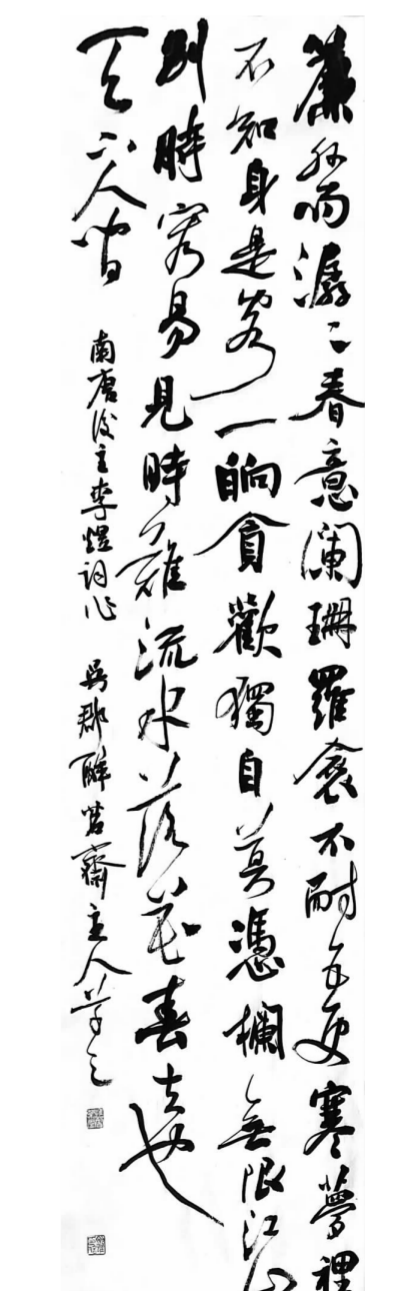 簾外雨潺〻春意闌珊羅衾不耐五更寒夢裡
不知身是客一晌貪歡獨自莫憑欄無限江山
別時容易見時難流水落花春去也
天上人間
南唐後主李煜詞作 吳郡醉茗齋主人